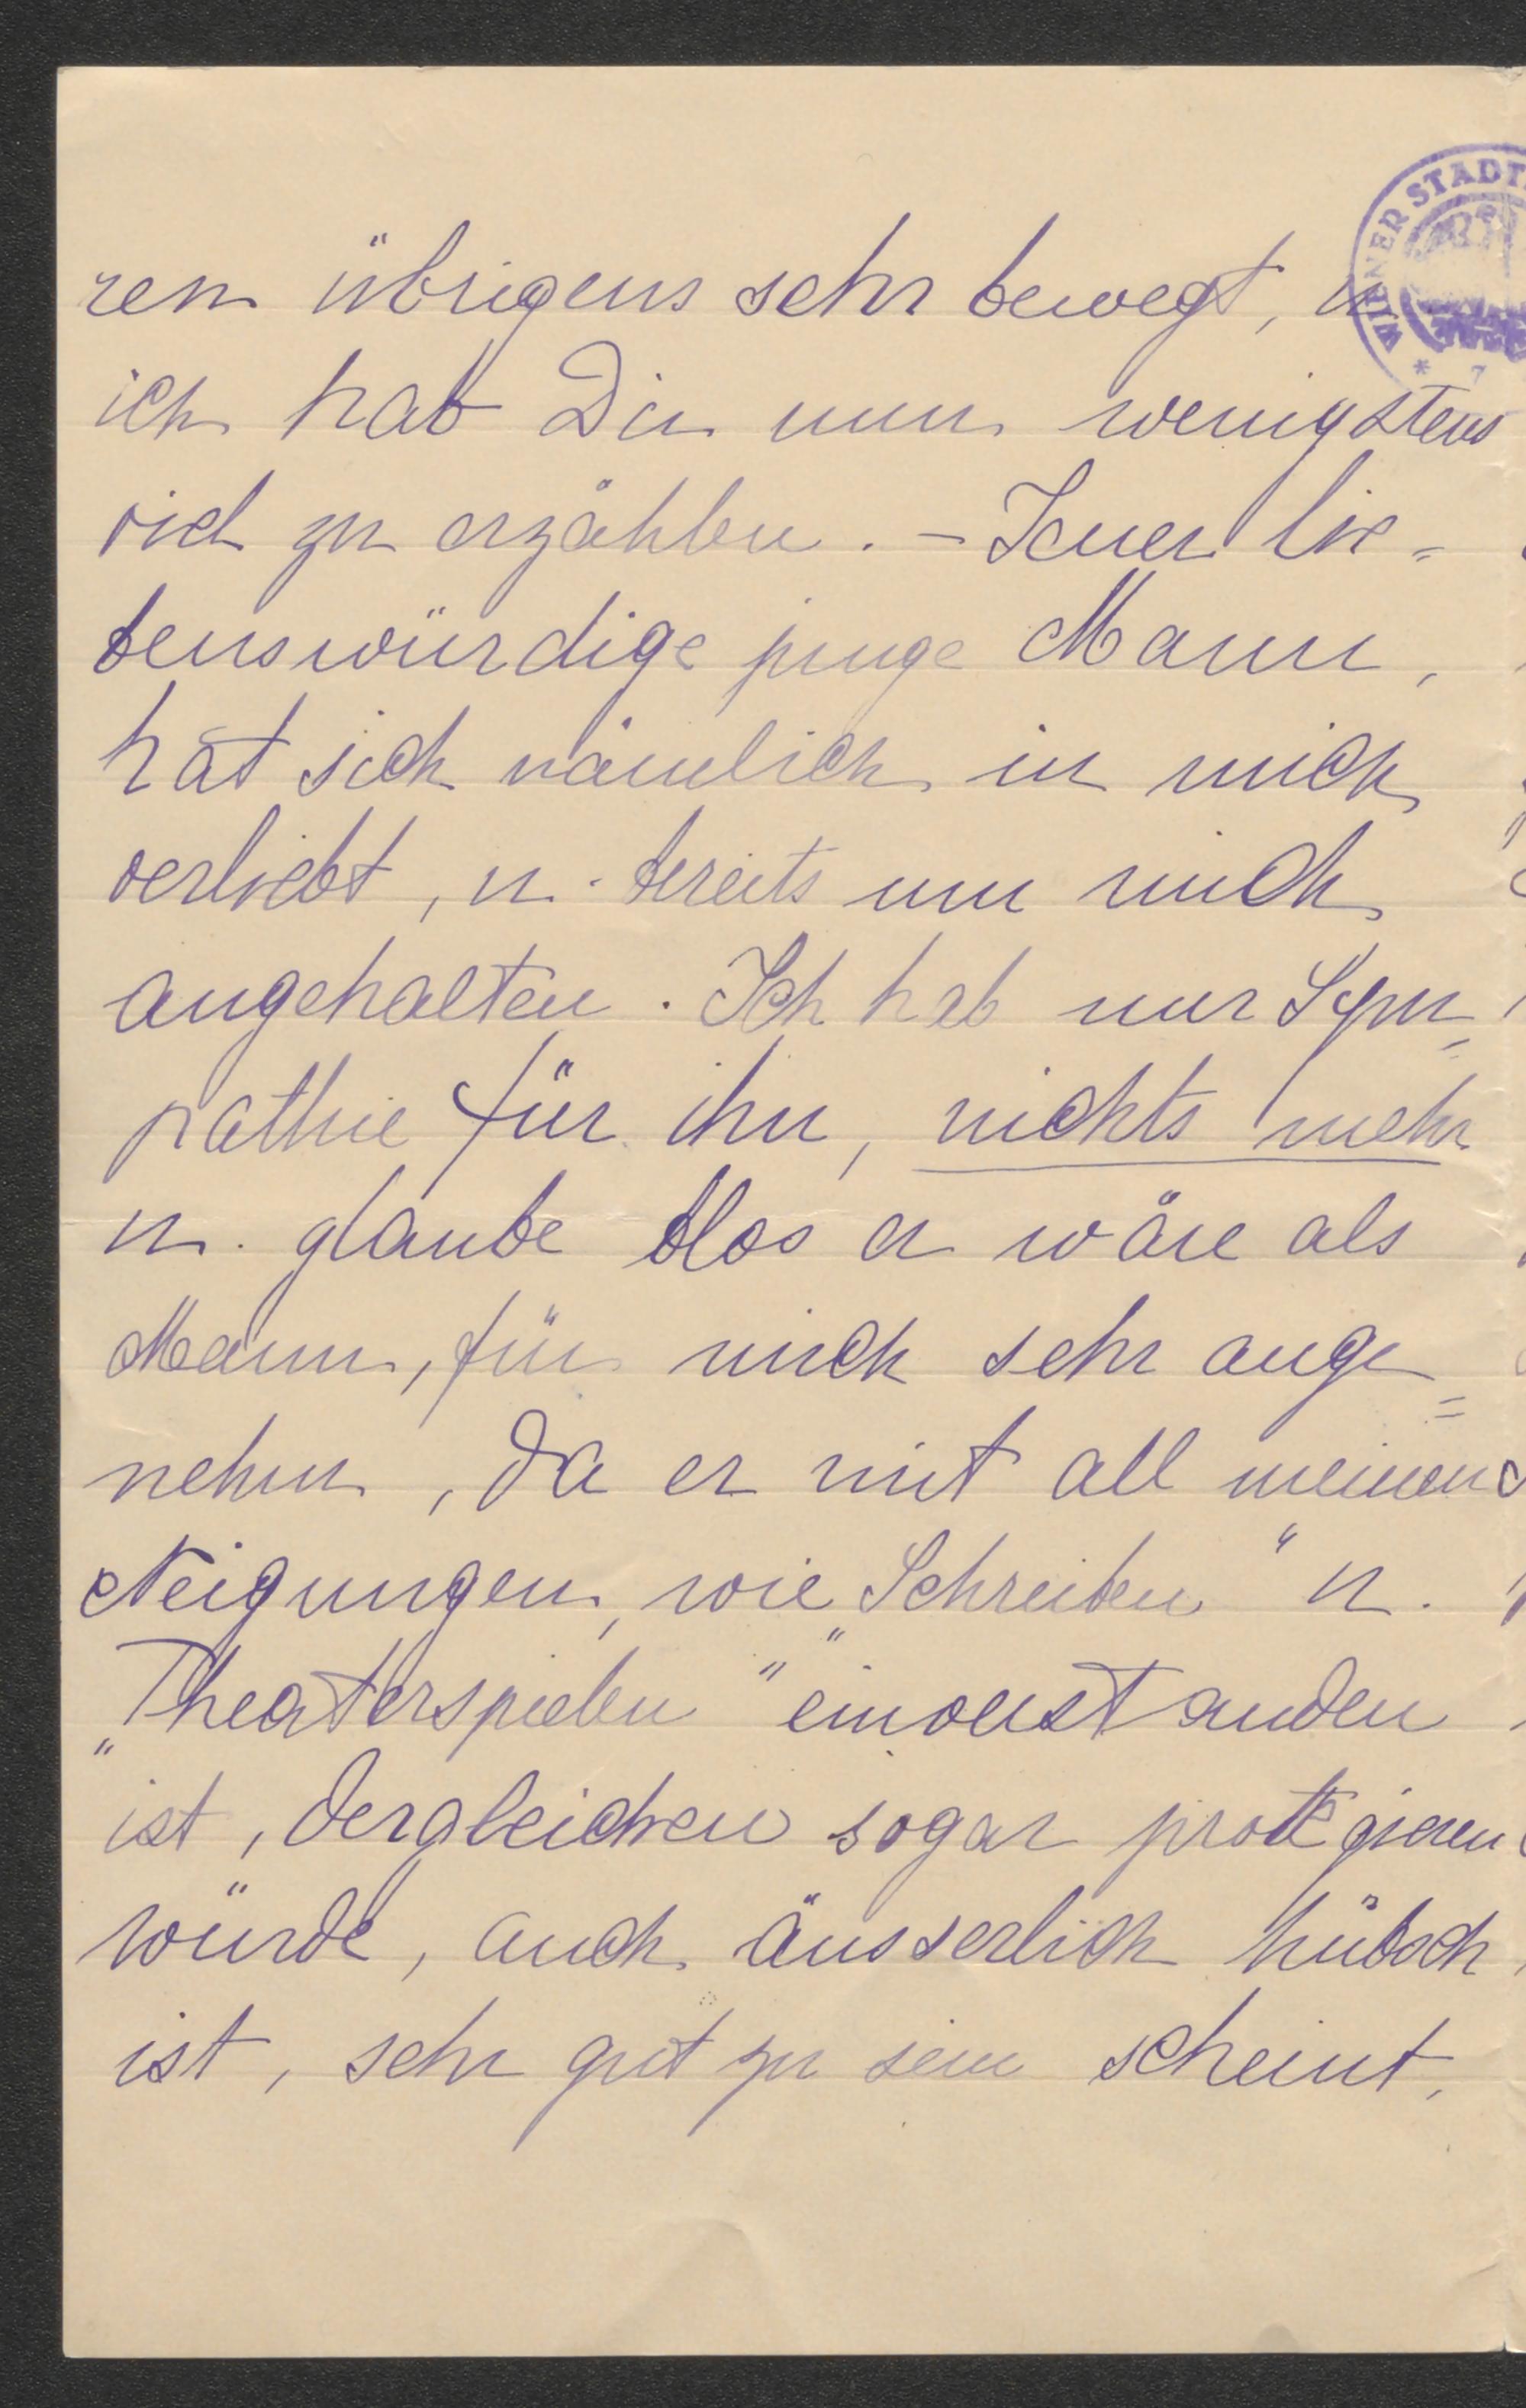 WIENER STADT
* 7
ren übrigens sehr bewegt, u
ich hab Dir nun wenigstens
viel zu erzählen. – Jener lie=
benswürdige junge Mann,
hat sich nämlich in mich
verliebt, u. bereits um mich
angehalten. Ich hab nur Sym=
pathie für ihn, nichts mehr
u. glaube blos er wäre als
Mann, für mich sehr ange=
nehm, da er mit all meinen
Neigungen, wie „Schreiben" u.
„Theaterspielen" einverstanden
ist, dergleichen sogar protegieren
würde, auch äusserlich hübsch
ist, sehr gut zu sein scheint,